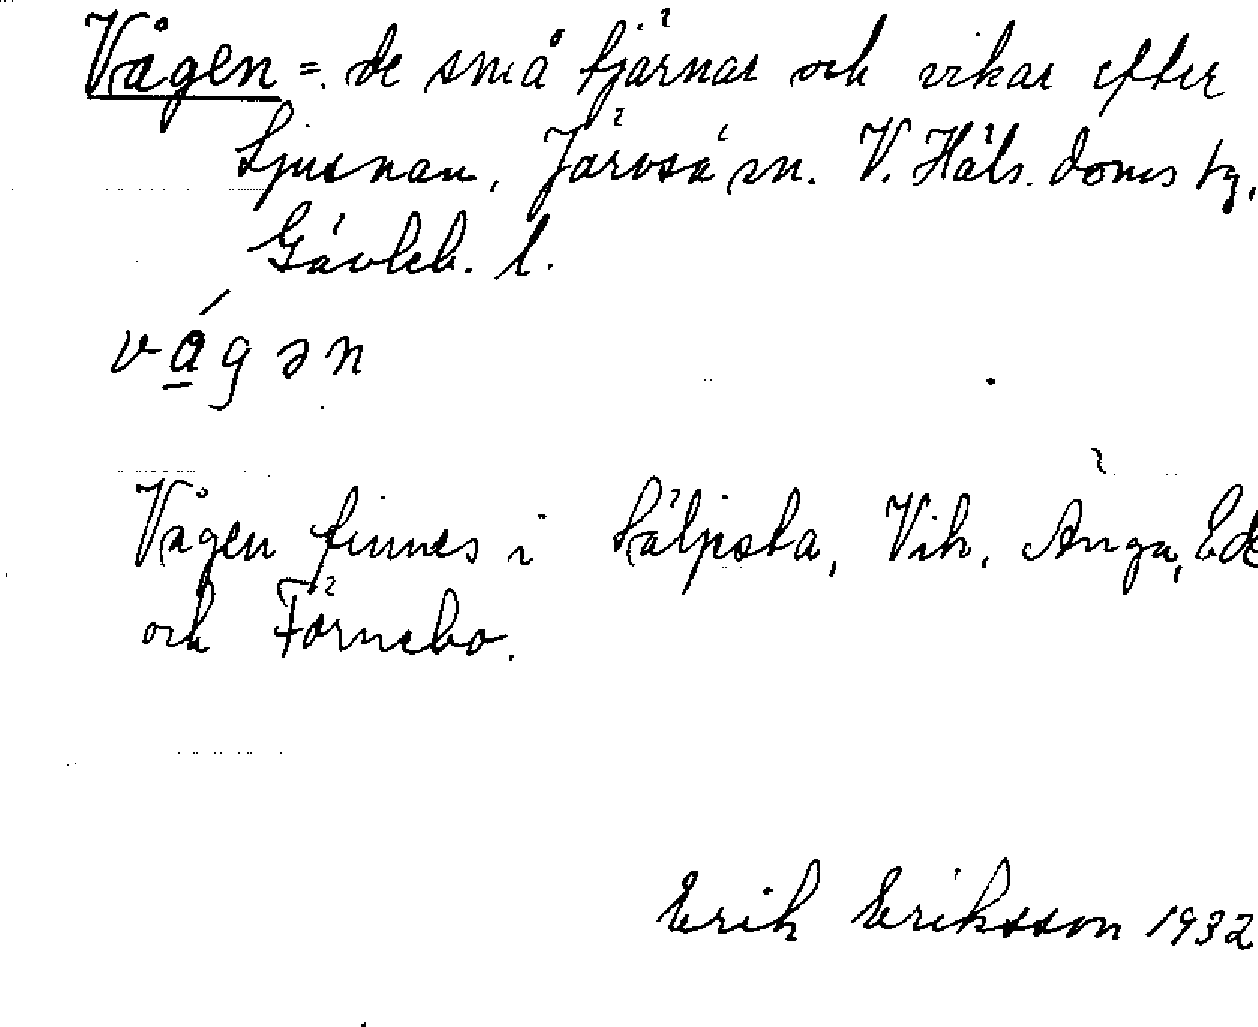 Vågen = de små tjärnar och vikar efter
Ljusnan, Järvsö sn. V. Häls. doms tg,
Gävleb. l.
vágən
Vågen finnes i Säljesta, Vik, Änga, Ede
och Förnebo.
Erik Eriksson 1932